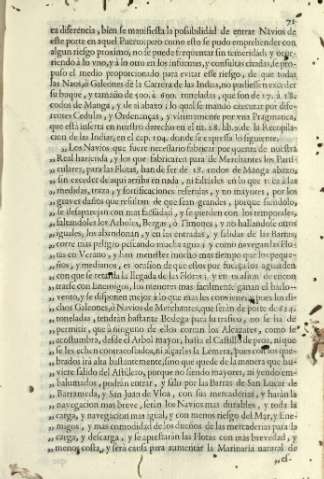 71
ta diferencia, bien se manifiesta la possibilidad de entrar Navios de
este porte en aquel Puerto; pero como esto se pudo emprehender con
algun riesgo proximo, no se puede frequentar sin temeridad; y
riendo à lo vno, y à lo otro en los informes, y consultas citadas, se pro-
puso el medio proporcionado para evitar este riesgo, de que todas
las Naos, ò Galeones de la Carrera de las Indias, no pudiessen exceder
su buque, y tamaño de 500. à 600. toneladas, que son de 17. à 18.
codos de Manga, y de aì abaxo; lo qual se mandò executar por dife-
rentes Cedulas, y Ordenanças, y vltimamente por vna Pragmatica,
que està inserta en nuestro derecho en el tit. 28. lib. 9. de la Recopila-
cion de las Indias, en el cap. donde se expressa lo siguiente.
„ Los Navios que fuere necessario fabricar por quenta de nuestra
„ Real hazienda, y los que fabricaren para de Merchantes los Parti-
„ culares, para las Flotas, han de ser de 17. codos de Manga abaxo,
„ sin exceder de aqui arriba en nada, ni faltarles en lo que toca à las
„ medidas, traza, y fortificaciones referidas, y no mayores, por los
„ graves daños que resultan de que sean grandes, porque siendolo,
„ se desaparejan con mas facilidad, y se pierden con los temporales,
„ faltandoles los Arboles, Bergas, ò Timones, y no hallandose otros
„ iguales, los abandonan, y en las entradas, y salidas de las Barras
„ corre mas peligro pescando mucha agua; y como navegan las Flo-
„ tas en Verano, y han menester mucho mas tiempo que los peque-
„ ños, y medianos, es ocasion de que ellos por
„ con que se retarda la llegada de las Flotas; y en
„ trarse con Enemigos, los menores mas facilmente ganan el barlo-
„ vento, y se disponen mejor à lo que mas les conviene; pues los di-
„ chos Galeones, ò Navios de Merchantes, que seràn de porte de
„ toneladas, tendràn bastante Bodega para su trafico, no se ha de
„ permitir, que à ninguno de ellos corran los Alcazares, como se
„ acostumbra, desde el Arbol mayor, hasta el Castillo de proa, ni que
„ se les echen contracostados, ni
„ brados irà alta bastantemente, sino que quede de la manera que hu-
„ viere salido del Astillero, porque no siendo mayores, ni yendo em-
„ balumados, podràn entrar, y salir por las Barras de San Lucar de
„ Barrameda, y San Juan de Vlua, con sus mercaderias, y haràn la
„ navegacion mas breve, seràn los Navios mas durables, y toda la
„ carga, y navegacion mas igual, y con menos riesgo del Mar, y Ene-
„ migos, y mas comodidad de los dueños de las mercaderias para la
„ carga, y descarga, y se aprestaràn las Flotas con mas brevedad, y
„ menos costa, y serà causa para aumentar la Marineria natural de